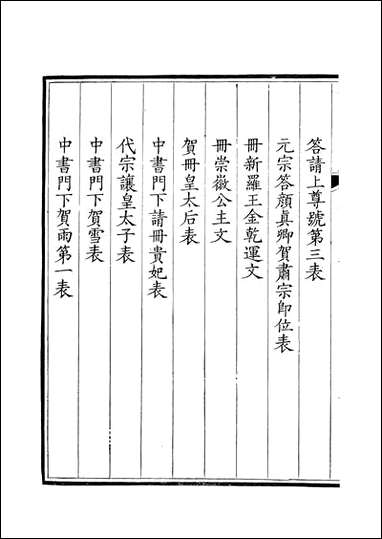 答請上尊號第三表
元宗答顏眞卿賀肅宗卽位表
冊新羅王金乾運文
冊崇徽公主文
賀冊皇太后表
中書門下請冊貴妃表
代宗讓皇太子表
中書門下賀雪表
中書門下賀雨第一表